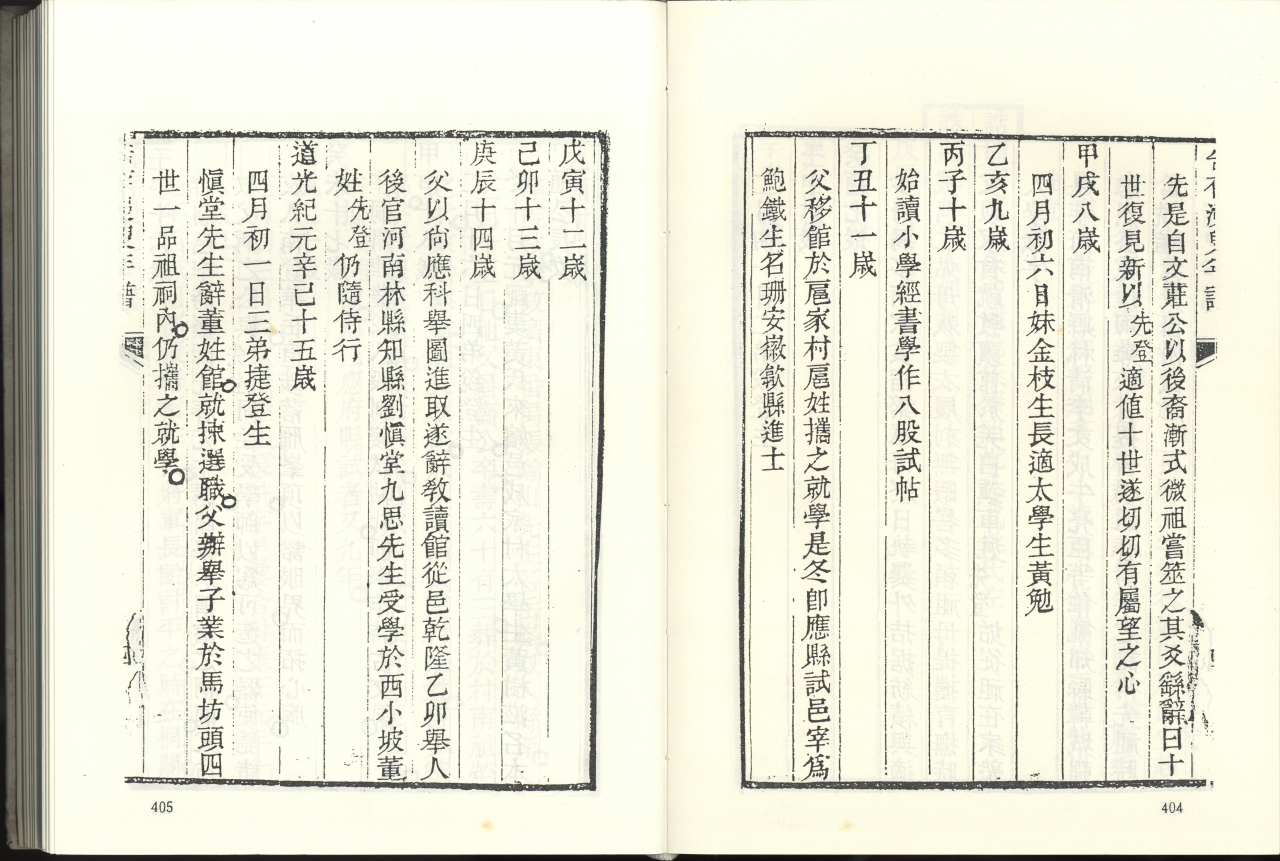 先是自文莊公以後裔漸式微祖嘗筮之其爻繇辭曰十
世復見新以先登適値十世遂切切有屬望之心
甲戌八歲
四月初六日妹金枝生長適太學生黃勉
乙亥九歲
丙子十歲
始讀小學經書學作八股試帖
丁丑十一歲
父移館於扈家村扈姓攜之就學是冬卽應縣試邑宰爲
鮑鐵生名珊安徽歙縣進士
404
戊寅十二歲
己卯十三歲
庚辰十四歲
父以尙應科舉圖進取遂辭敎讀館從邑乾隆乙卯舉人
後官河南林縣知縣劉愼堂九思先生受學於西小坡董
姓先登仍隨侍行
道光紀元辛巳十五歲
四月初一日三弟捷登生
愼堂先生辭董姓館就揀選職父辦舉子業於馬坊頭四
世一品祖祠內仍攜之就學
405